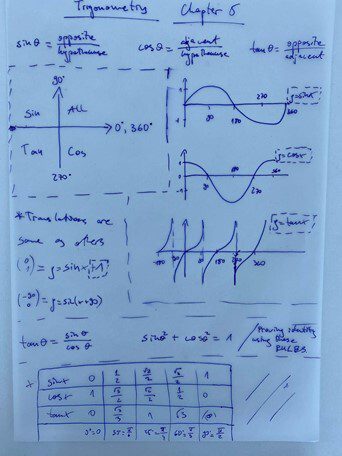 Trigonometry Chapter 5
sinθ = opposite/hypothenuse cosθ = adjacent/hypothenuse tanθ = opposite/adjacent
90°
Sin All
0°, 360°
Tan Cos
270°
y=sinx
1
90 180 270 360
-1
y=cosx
1
90 180 270 360
-1
y=tanx
-180 -90 90 180 360
* Translations are
same as others
(0 1) = y=sinx+1
(-90 0) = y=sin(x+90)
tanθ = sinθ/cosθ
sinθ² + cosθ² = 1
Proving identity
using these
RULES
sinx 0 1/2 √2/2 √3/2 1
cosx 1 √3/2 √2/2 1/2 0
tanx 0 √3/3 1 √3